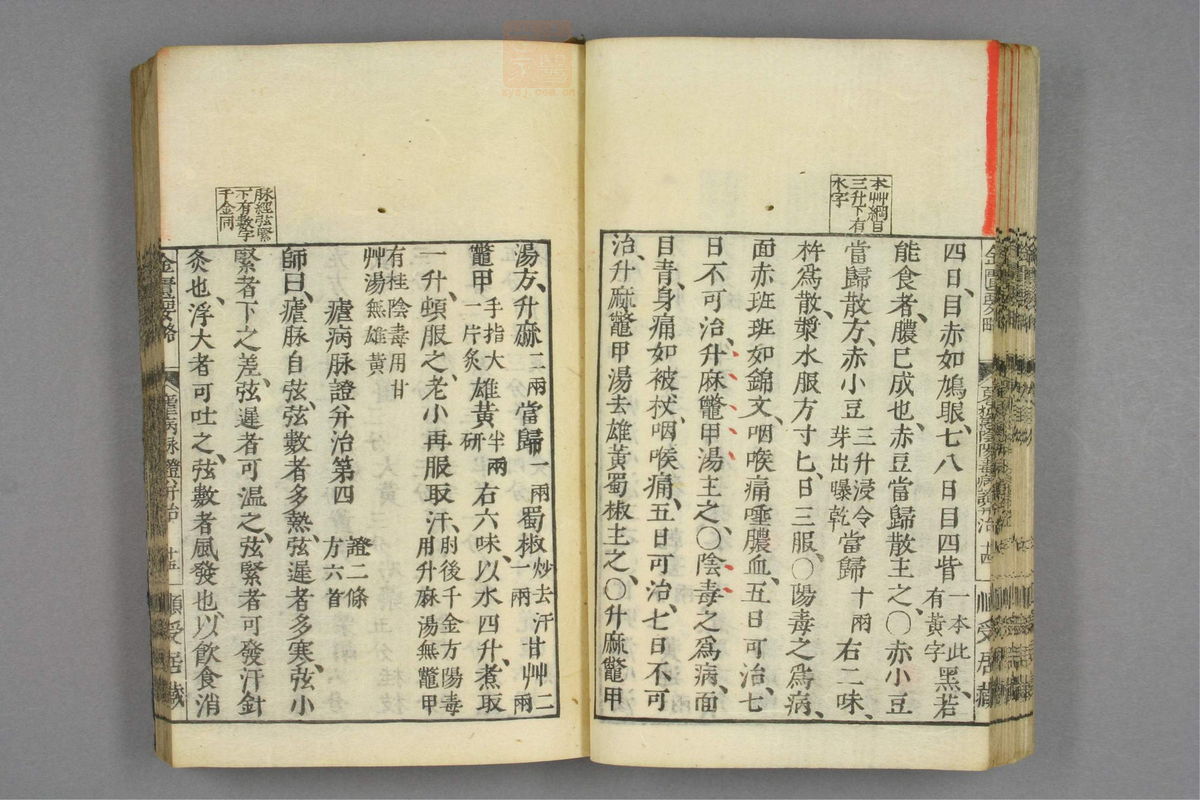 本艸綱目
三升下有
水字
四日、目赤如鳩眼、七八日目四眥一本此有黃字黑、若
能食者、膿已成也、赤豆當歸散主之、〇赤小豆
當歸散方、赤小豆三升浸令芽出曝乾當歸十兩右二味、
杵爲散、漿水服方寸匕、日三服、〇陽毒之爲病、
面赤班班如錦文、咽喉痛、唾膿血、五日可治、七
日不可治、升麻鼈甲湯主之、〇陰毒之爲病、面
目青、身痛如被杖、咽喉痛、五日可治、七日不可
治、升麻鼈甲湯去雄黃蜀椒主之、〇升麻鼈甲
脉經弦緊
下有數字
千金同
湯方、升麻二兩當歸一兩蜀椒炒去汗一兩甘艸二兩
鼈甲手指大一片炙雄黃半兩研右六味、以水四升、煮取
一升、頓服之、老小再服取汗、肘後千金方陽毒用升麻湯無鼈甲
有桂陰毒用甘艸湯無雄黃
瘧病脉證并治第四證二條方六首
師曰、瘧脉自弦、弦數者多熱、弦遲者多寒、弦小
緊者下之差、弦遲者可温之、弦緊者可發汗針
灸也、浮大者可吐之、弦數者風發也、以飲食消
金匱要略 瘧病脉證并治 順受居藏